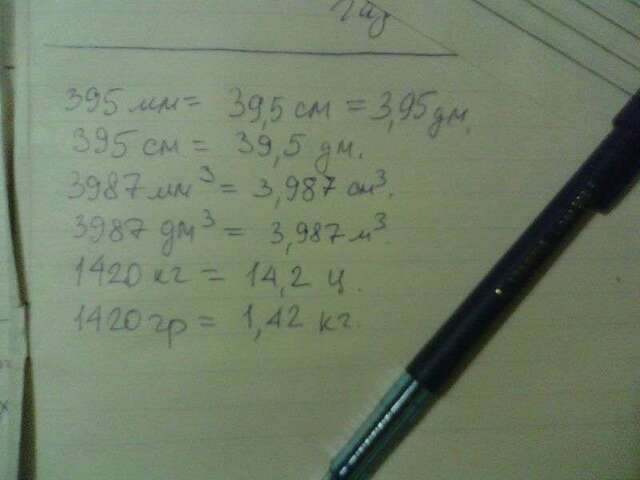 395 мм = 39,5 см = 3,95 дм.
395 см = 39,5 дм.
3987 мм³ = 3,987 см³.
3987 дм³ = 3,987 м³.
1420 кг = 14,2 ц.
1420 гр = 1,42 кг.